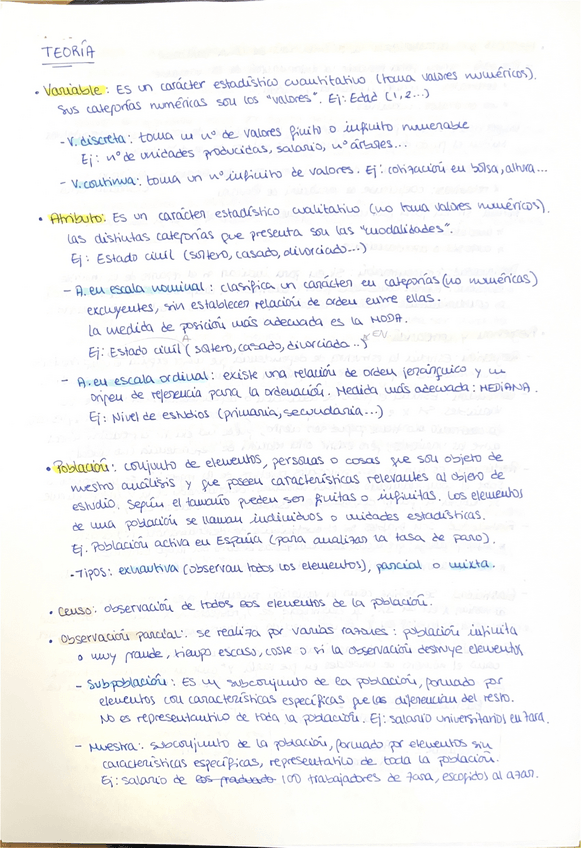 TEORÍA
• Variable: Es un carácter estadístico cuantitativo (toma valores numéricos).
Sus categorías numéricas son los "valores". Ej: Edad (1, 2...)
- V. discreta: toma un nº de valores finito o infinito numerable
Ej: nº de unidades producidas, salario, nº árboles...
- V. continua: toma un nº infinito de valores. Ej: cotización en bolsa, altura...
• Atributo: Es un carácter estadístico cualitativo (no toma valores numéricos).
Las distintas categorías que presenta son las "modalidades".
Ej: Estado civil (soltero, casado, divorciado...)
- A. en escala nominal: clasifica un carácter en categorías (no numéricas)
excluyentes, sin establecer relación de orden entre ellas.
La medida de posición más adecuada es la MODA.
Ej: Estado civil (soltero, casado, divorciado...)
- A. en escala ordinal: existe una relación de orden jerárquico y un
origen de referencia para la ordenación. Medida más adecuada: MEDIANA.
Ej: Nivel de estudios (primaria, secundaria...)
• Población: conjunto de elementos, personas o cosas que son objeto de
nuestro análisis y que poseen características relevantes al objeto de
estudio. Según el tamaño pueden ser finitas o infinitas. Los elementos
de una población se llaman individuos o unidades estadísticas.
Ej. Población activa en España (para analizar la tasa de paro).
- Tipos: exhaustiva (observan todos los elementos), parcial o mixta.
• Censo: observación de todos los elementos de la población.
• Observación parcial: se realiza por varias razones: población infinita
o muy grande, tiempo escaso, coste o si la observación destruye elementos
- Subpoblación: Es un subconjunto de la población, formado por
elementos con características específicas que las diferencian del resto.
No es representativo de toda la población. Ej: salario universitarios en Zara.
- Muestra: subconjunto de la población, formado por elementos sin
características específicas, representativo de toda la población.
Ej: salario de 100 trabajadores de Zara, escogidos al azar.